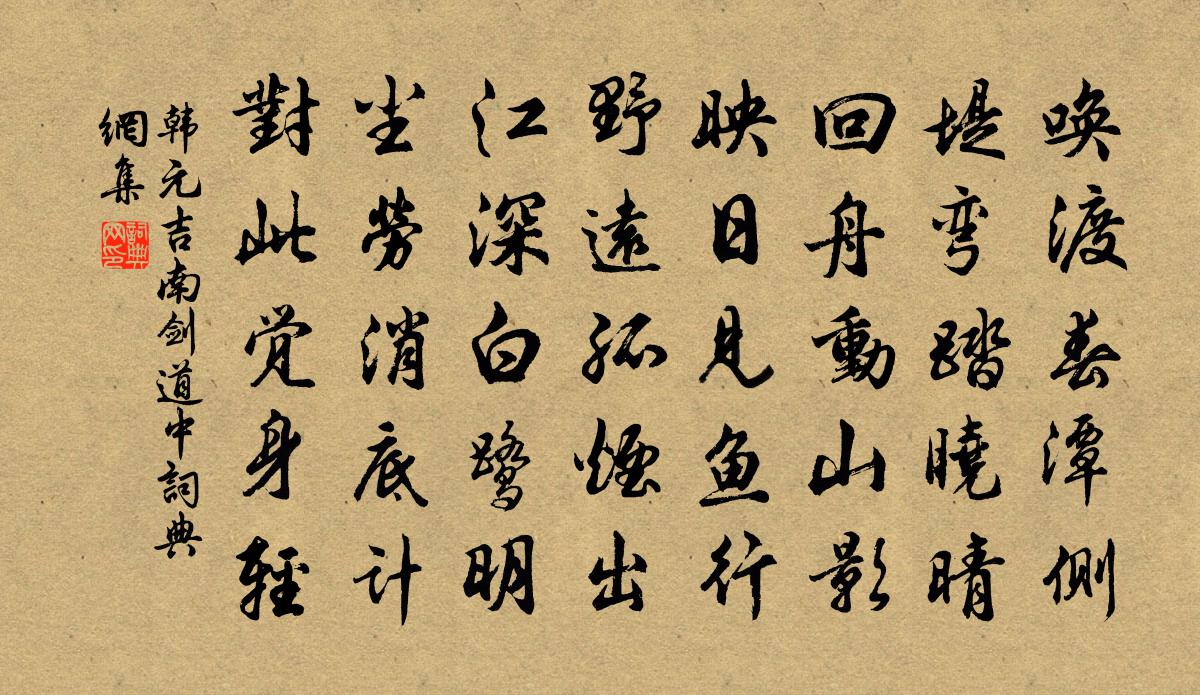 唤渡春潭側
堤弯踏曉晴
回舟動山影
映日見鱼行
野遠孤煙出
江深白鷺明
尘勞消底计
對此觉身輕
韩元吉南剑道中詞典
網集
詞典
网印